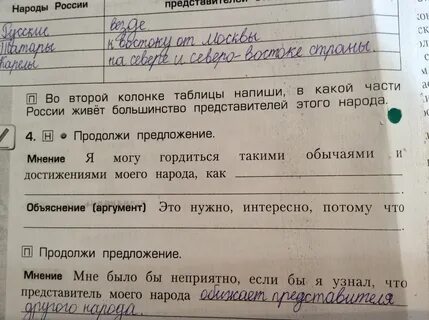 Народы России представителей
Русские везде
Татары к востоку от Москвы
Карелы на севере и северо-востоке страны.
П Во второй колонке таблицы напиши, в какой части
России живёт большинство представителей этого народа.
4. Н Продолжи предложение.
Мнение Я могу гордиться такими обычаями и
достижениями моего народа, как
Объяснение (аргумент) Это нужно, интересно, потому что
П Продолжи предложение.
Мнение Мне было бы неприятно, если бы я узнал, что
представитель моего народа обижает представителя
другого народа.